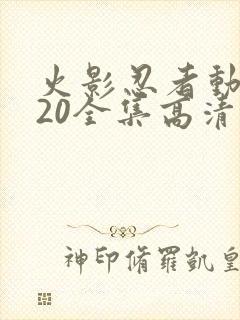 火影忍者動
20全集高清
神印脩羅凱皇